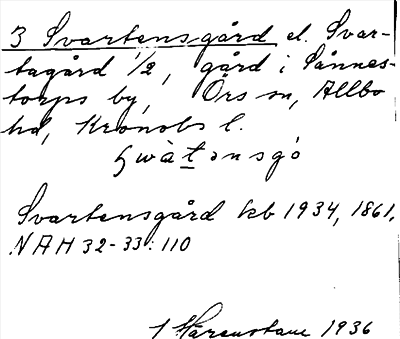 3 Svartensgård el. Svar-
tagård 1/2, gård i Sånnes-
torps by, Örs sn, Allbo
hd, Kronobs l.
Svartensgård kb 1934, 1861.
NAH 32-33: 110
1936